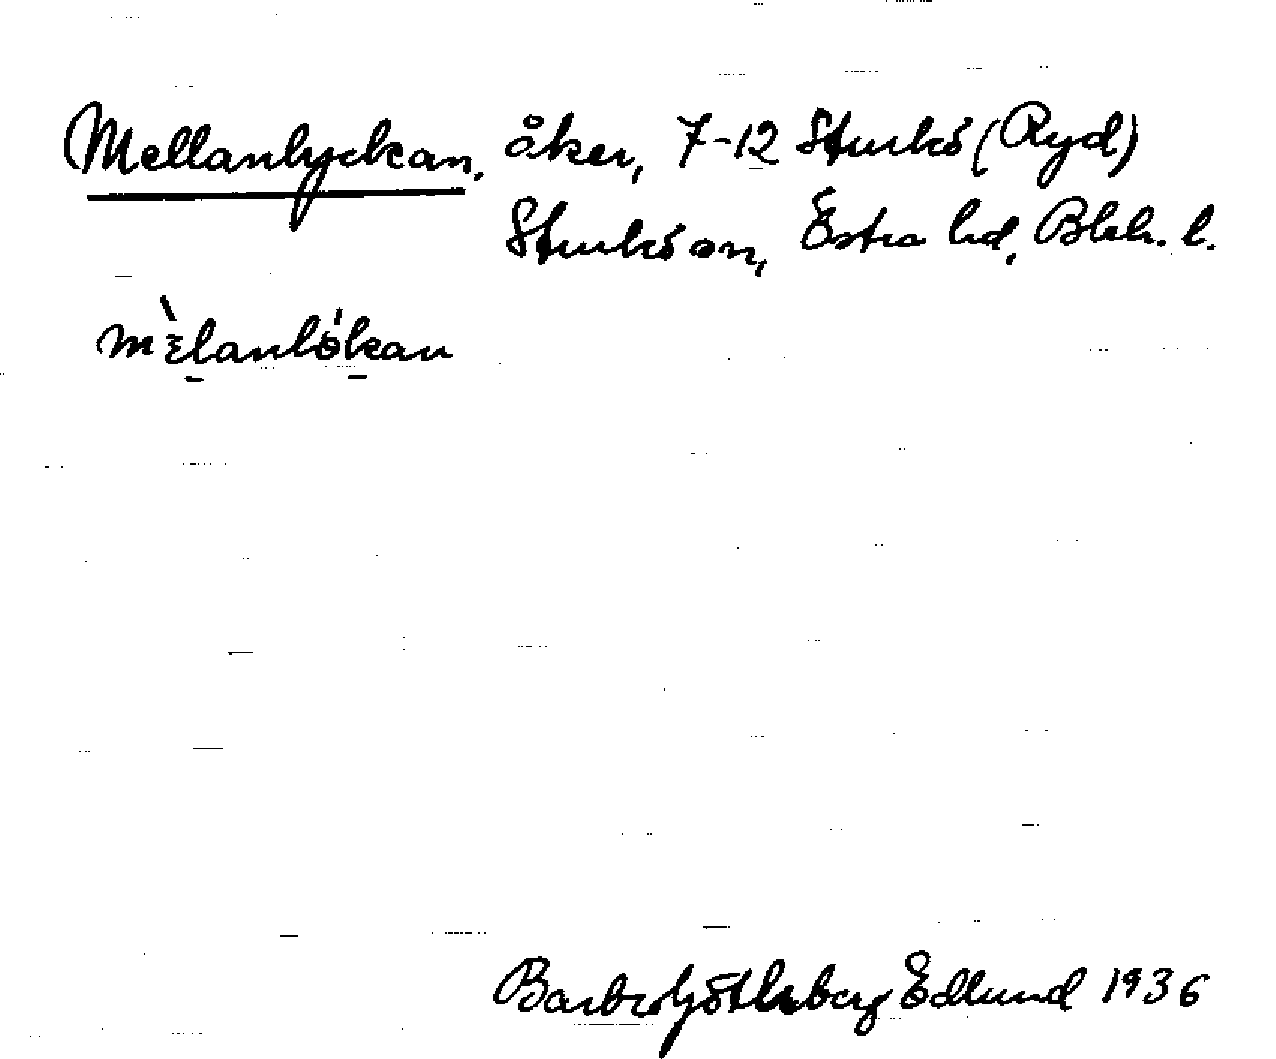 Mellanlyckan, åker, 7-12 Sturkö (Ryd)
Sturkö sn, Östra hd, Blek. l.
mὲlanlö́kan
Barbro Götlsberg Edlund 1936